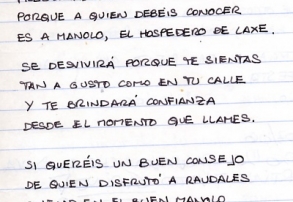 PORQUE A QUIEN DEBÉIS CONOCER
ES A MANOLO, EL HOSPEDERO DE LAXE.
SE DESVIVIRÁ PORQUE TE SIENTAS
TAN A GUSTO COMO EN TU CALLE
Y TE BRINDARÁ CONFIANZA
DESDE EL MOMENTO QUE LLAMES.
SI QUERÉIS UN BUEN CONSEJO
DE QUIEN DISFRUTÓ A RAUDALES
EN EL BUEN MANOLO